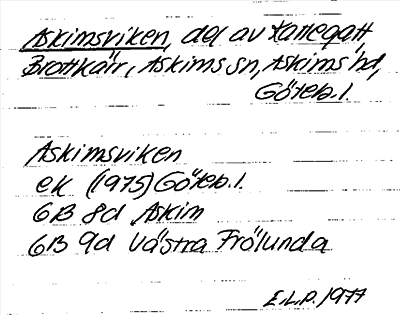 Askimsviken, del av Kattegatt
Brottkärr, Askims sn, Askims hd,
Göteb. l.
Askimsviken
ek (1975) Göteb. l.
6B 8d Askim
6B 9d Västra Frölunda
E.L.P. 1977